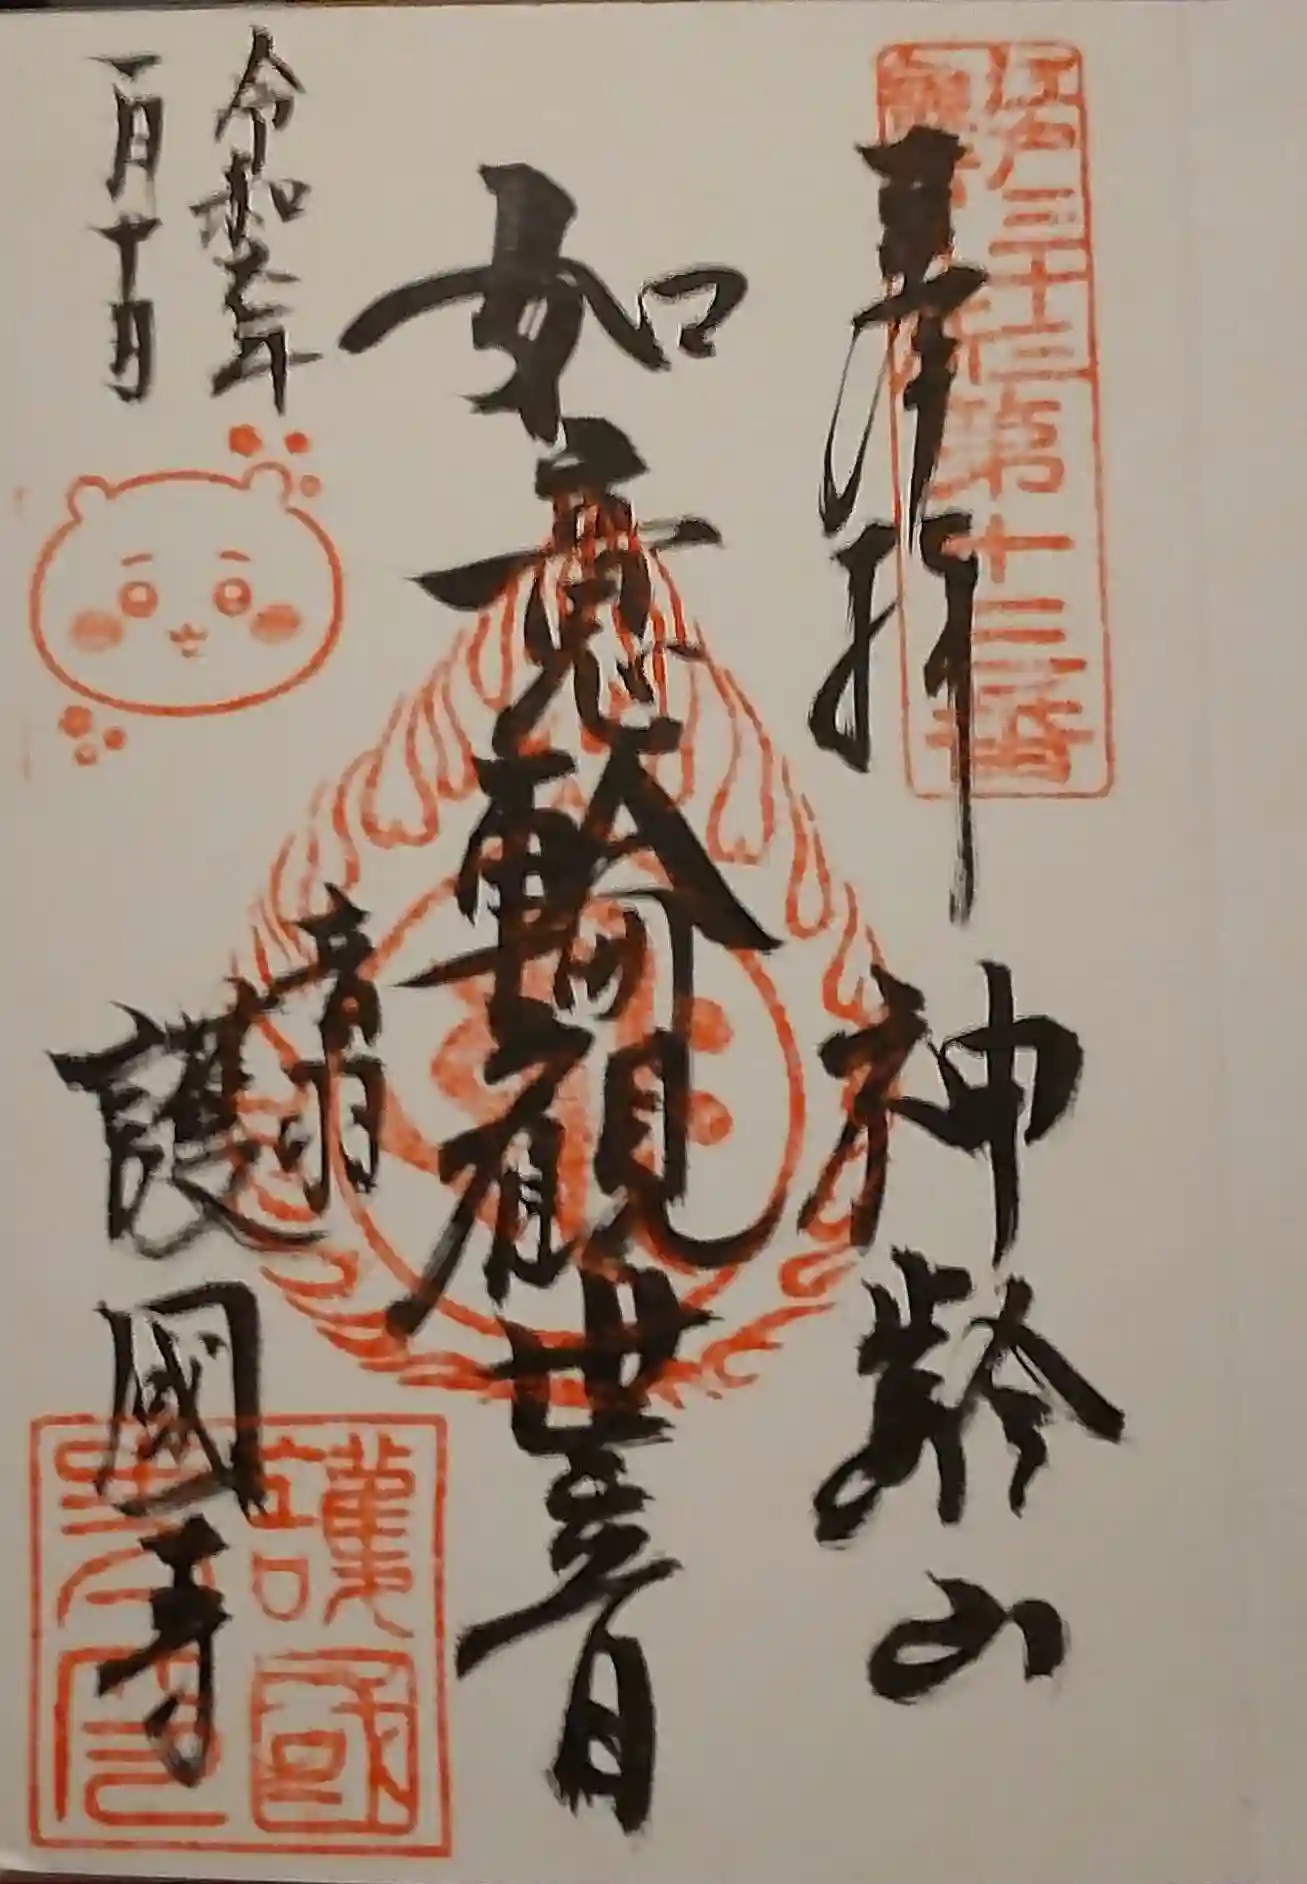 江戸三十三
第十三番
奉拝
神齢山
如意輪観世音
令和
月十日
音羽
護國寺
護國寺印